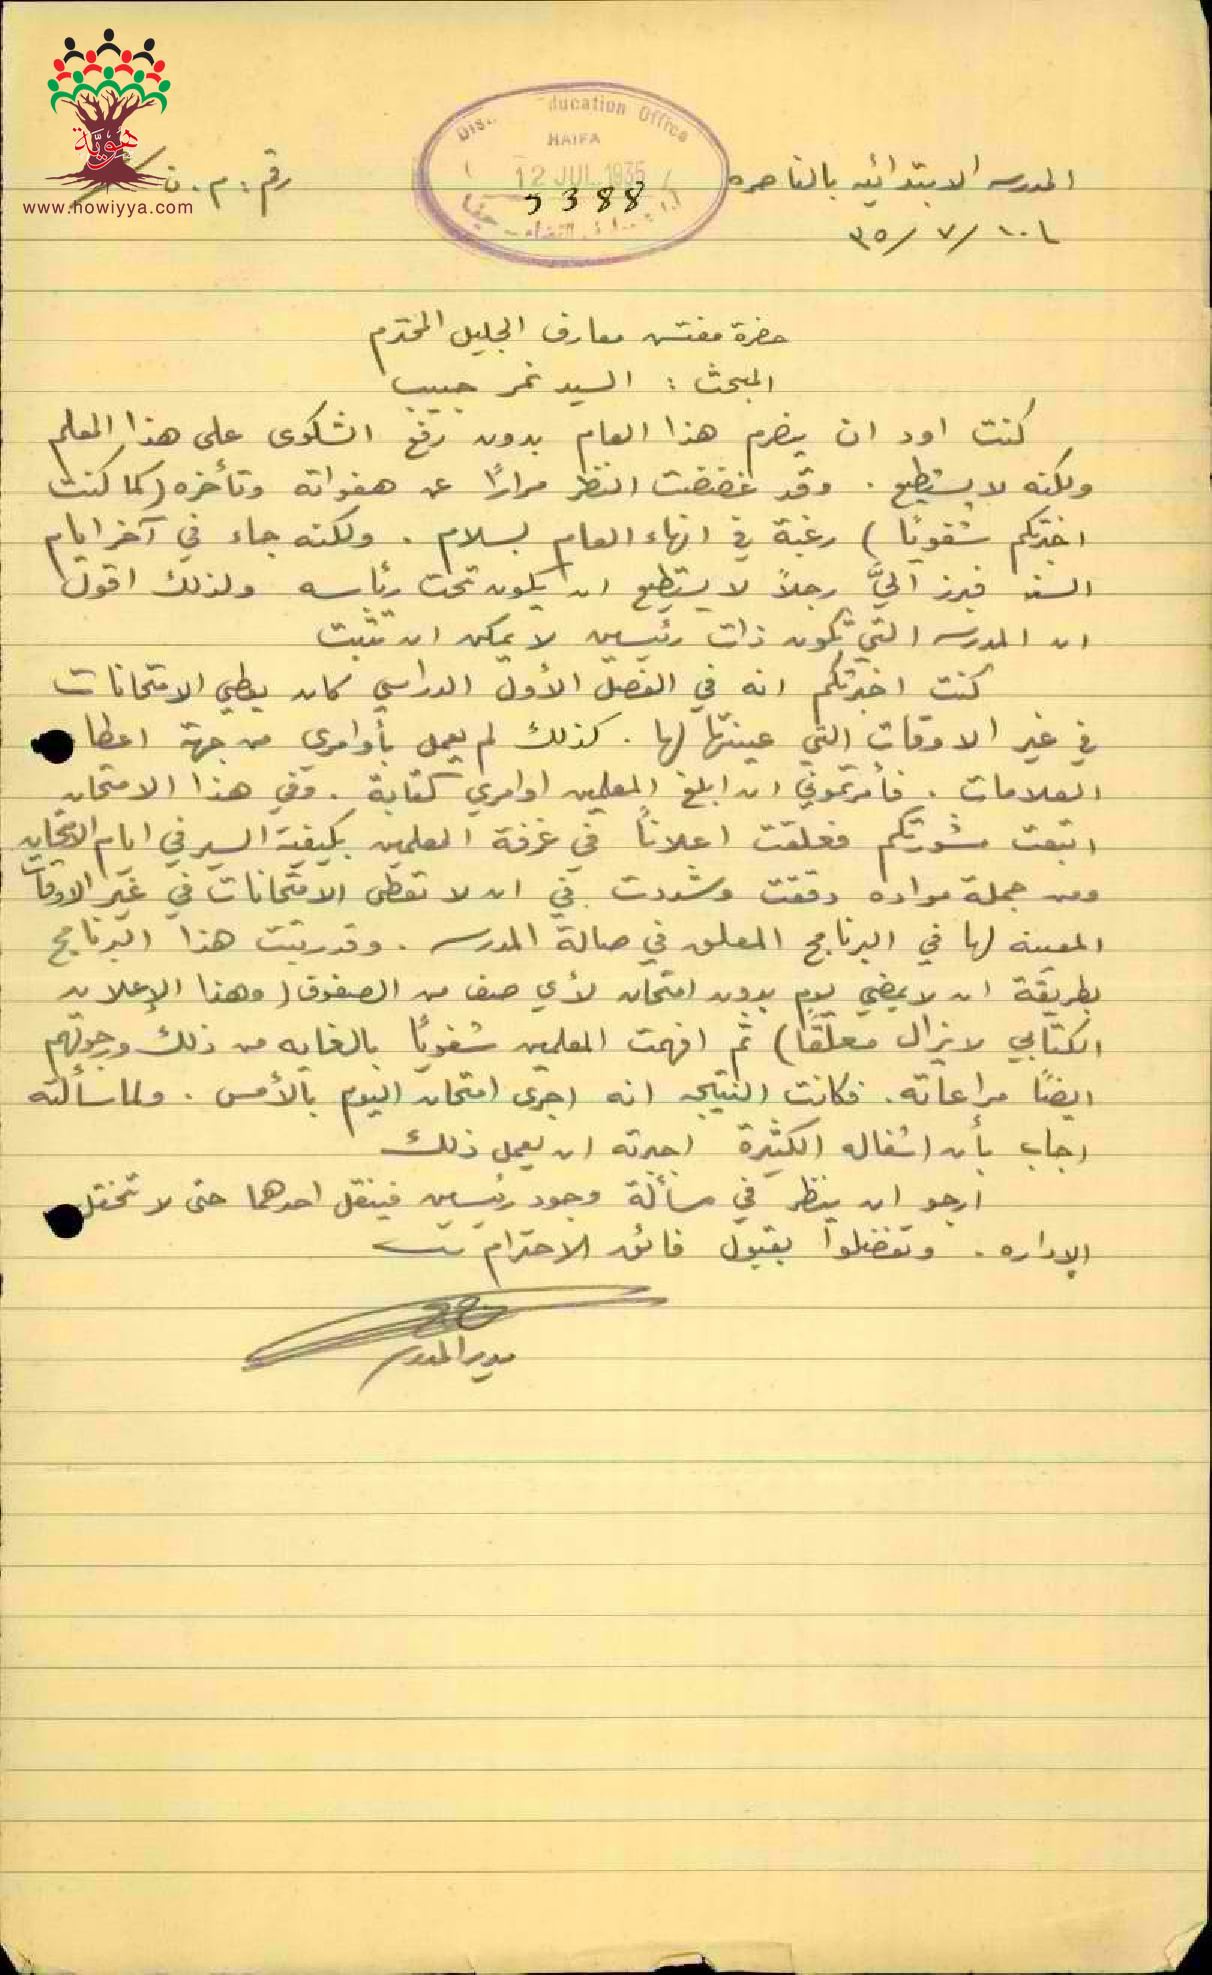 هوية
www.howiyya.com
Education Office
HAIFA
12 JUL 1935
5388
المدرسه الابتدائيه بالناصره
رقم: م. ن
١٠/٧/٣٥
حضرة مفتش معارف الجليل المحترم
المبحث : السيد نمر حبيب
كنت اود ان يضرم هذا العام بدون رفع الشكوى على هذا المعلم
ولكنه لا يستطيع . وقد غضضت النظر مرارًا عن هفواته وتأخره (كما كنت
اخبرتكم شفويًا) رغبة في انهاء العام بسلام . ولكنه جاء في آخر ايام
السنه فبرز اليَّ رجلاً لا يستطيع ان يكون تحت رئاسه ولذلك اقول
ان المدرسه التي تكون ذات رئيسين لا يمكن ان تثبت
كنت اخبرتكم انه في الفصل الأول الدراسي كان يعطي الامتحانات
في غير الاوقات التي عينتها لها . كذلك لم يعمل بأوامري من جهة اعطا
العلامات . فأمرتموني ان ابلغ المعلمين اوامري كتابة . وفي هذا الامتحان
اتبعت مشورتكم فعلقت اعلانًا في غرفة المعلمين بكيفية السير في ايام الامتحان
ومن جملة مواده دققت وشددت في ان لا تعطى الامتحانات في غير الاوقات
المعينه لها في البرنامج المعلق في صالة المدرسه . وقد رتبت هذا البرنامج
بطريقة ان لا يمضي يوم بدون امتحان لأي صف من الصفوف (وهذا الإعلان
الكتابي لا يزال معلقًا) ثم افهمت المعلمين شفويًا بالغايه من ذلك ورجوتهم
ايضًا مراعاته . فكانت النتيجه انه اجرى امتحان اليوم بالأمس . ولما سألته
اجاب بأن اشغاله الكثيرة اجبرته ان يعمل ذلك
ارجو ان ينظر في مسألة وجود رئيسين فينقل احدهما حتى لا تختل
الإداره . وتفضلوا بقبول فائق الاحترام
مدير المدرسه